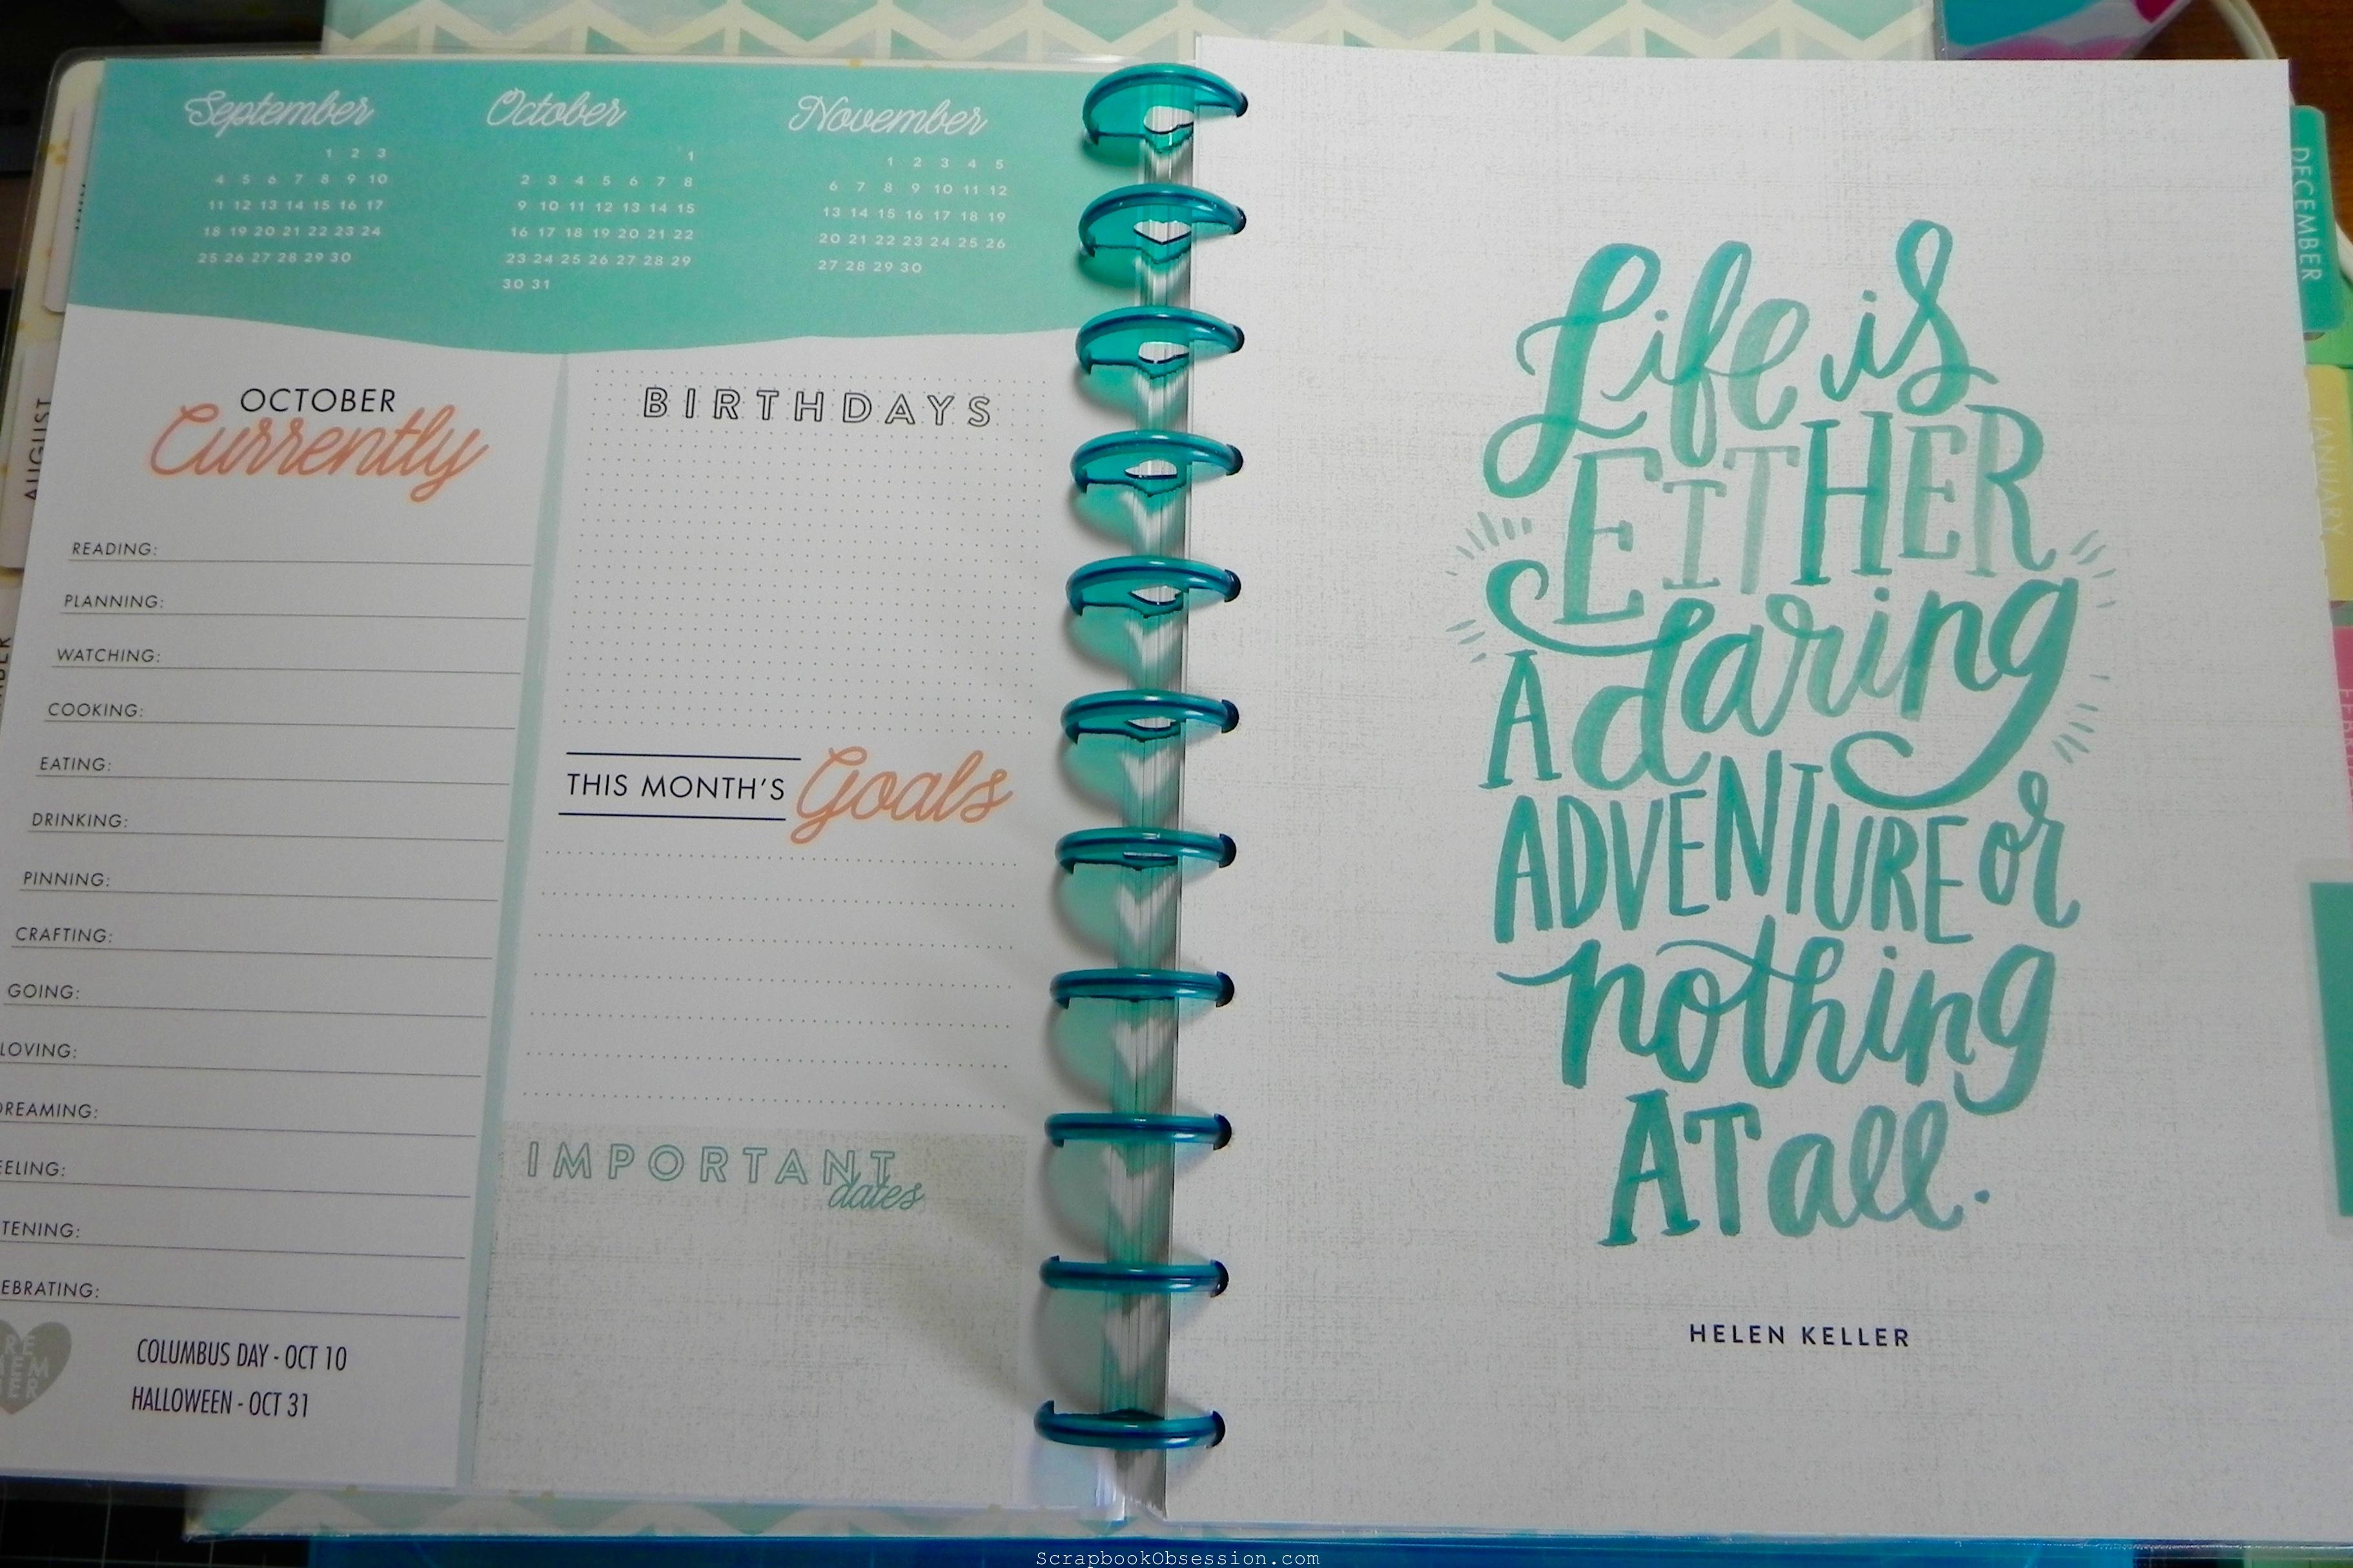 September
1 2 3
4 5 6 7 8 9 10
11 12 13 14 15 16 17
18 19 20 21 22 23 24
25 26 27 28 29 30
October
1
2 3 4 5 6 7 8
9 10 11 12 13 14 15
16 17 18 19 20 21 22
23 24 25 26 27 28 29
30 31
November
1 2 3 4 5
6 7 8 9 10 11 12
13 14 15 16 17 18 19
20 21 22 23 24 25 26
27 28 29 30
AUGUST
OCTOBER
Currently
READING:
PLANNING:
WATCHING:
COOKING:
EATING:
DRINKING:
PINNING:
CRAFTING:
GOING:
LOVING:
DREAMING:
EELING:
TENING:
EBRATING:
RE
MEM
BER
COLUMBUS DAY - OCT 10
HALLOWEEN - OCT 31
BIRTHDAYS
THIS MONTH'S Goals
IMPORTANT
dates
Life is
EITHER
A daring
ADVENTURE or
nothing
AT all.
HELEN KELLER
DECEMBER
JANUARY
ScrapbookObsession.com